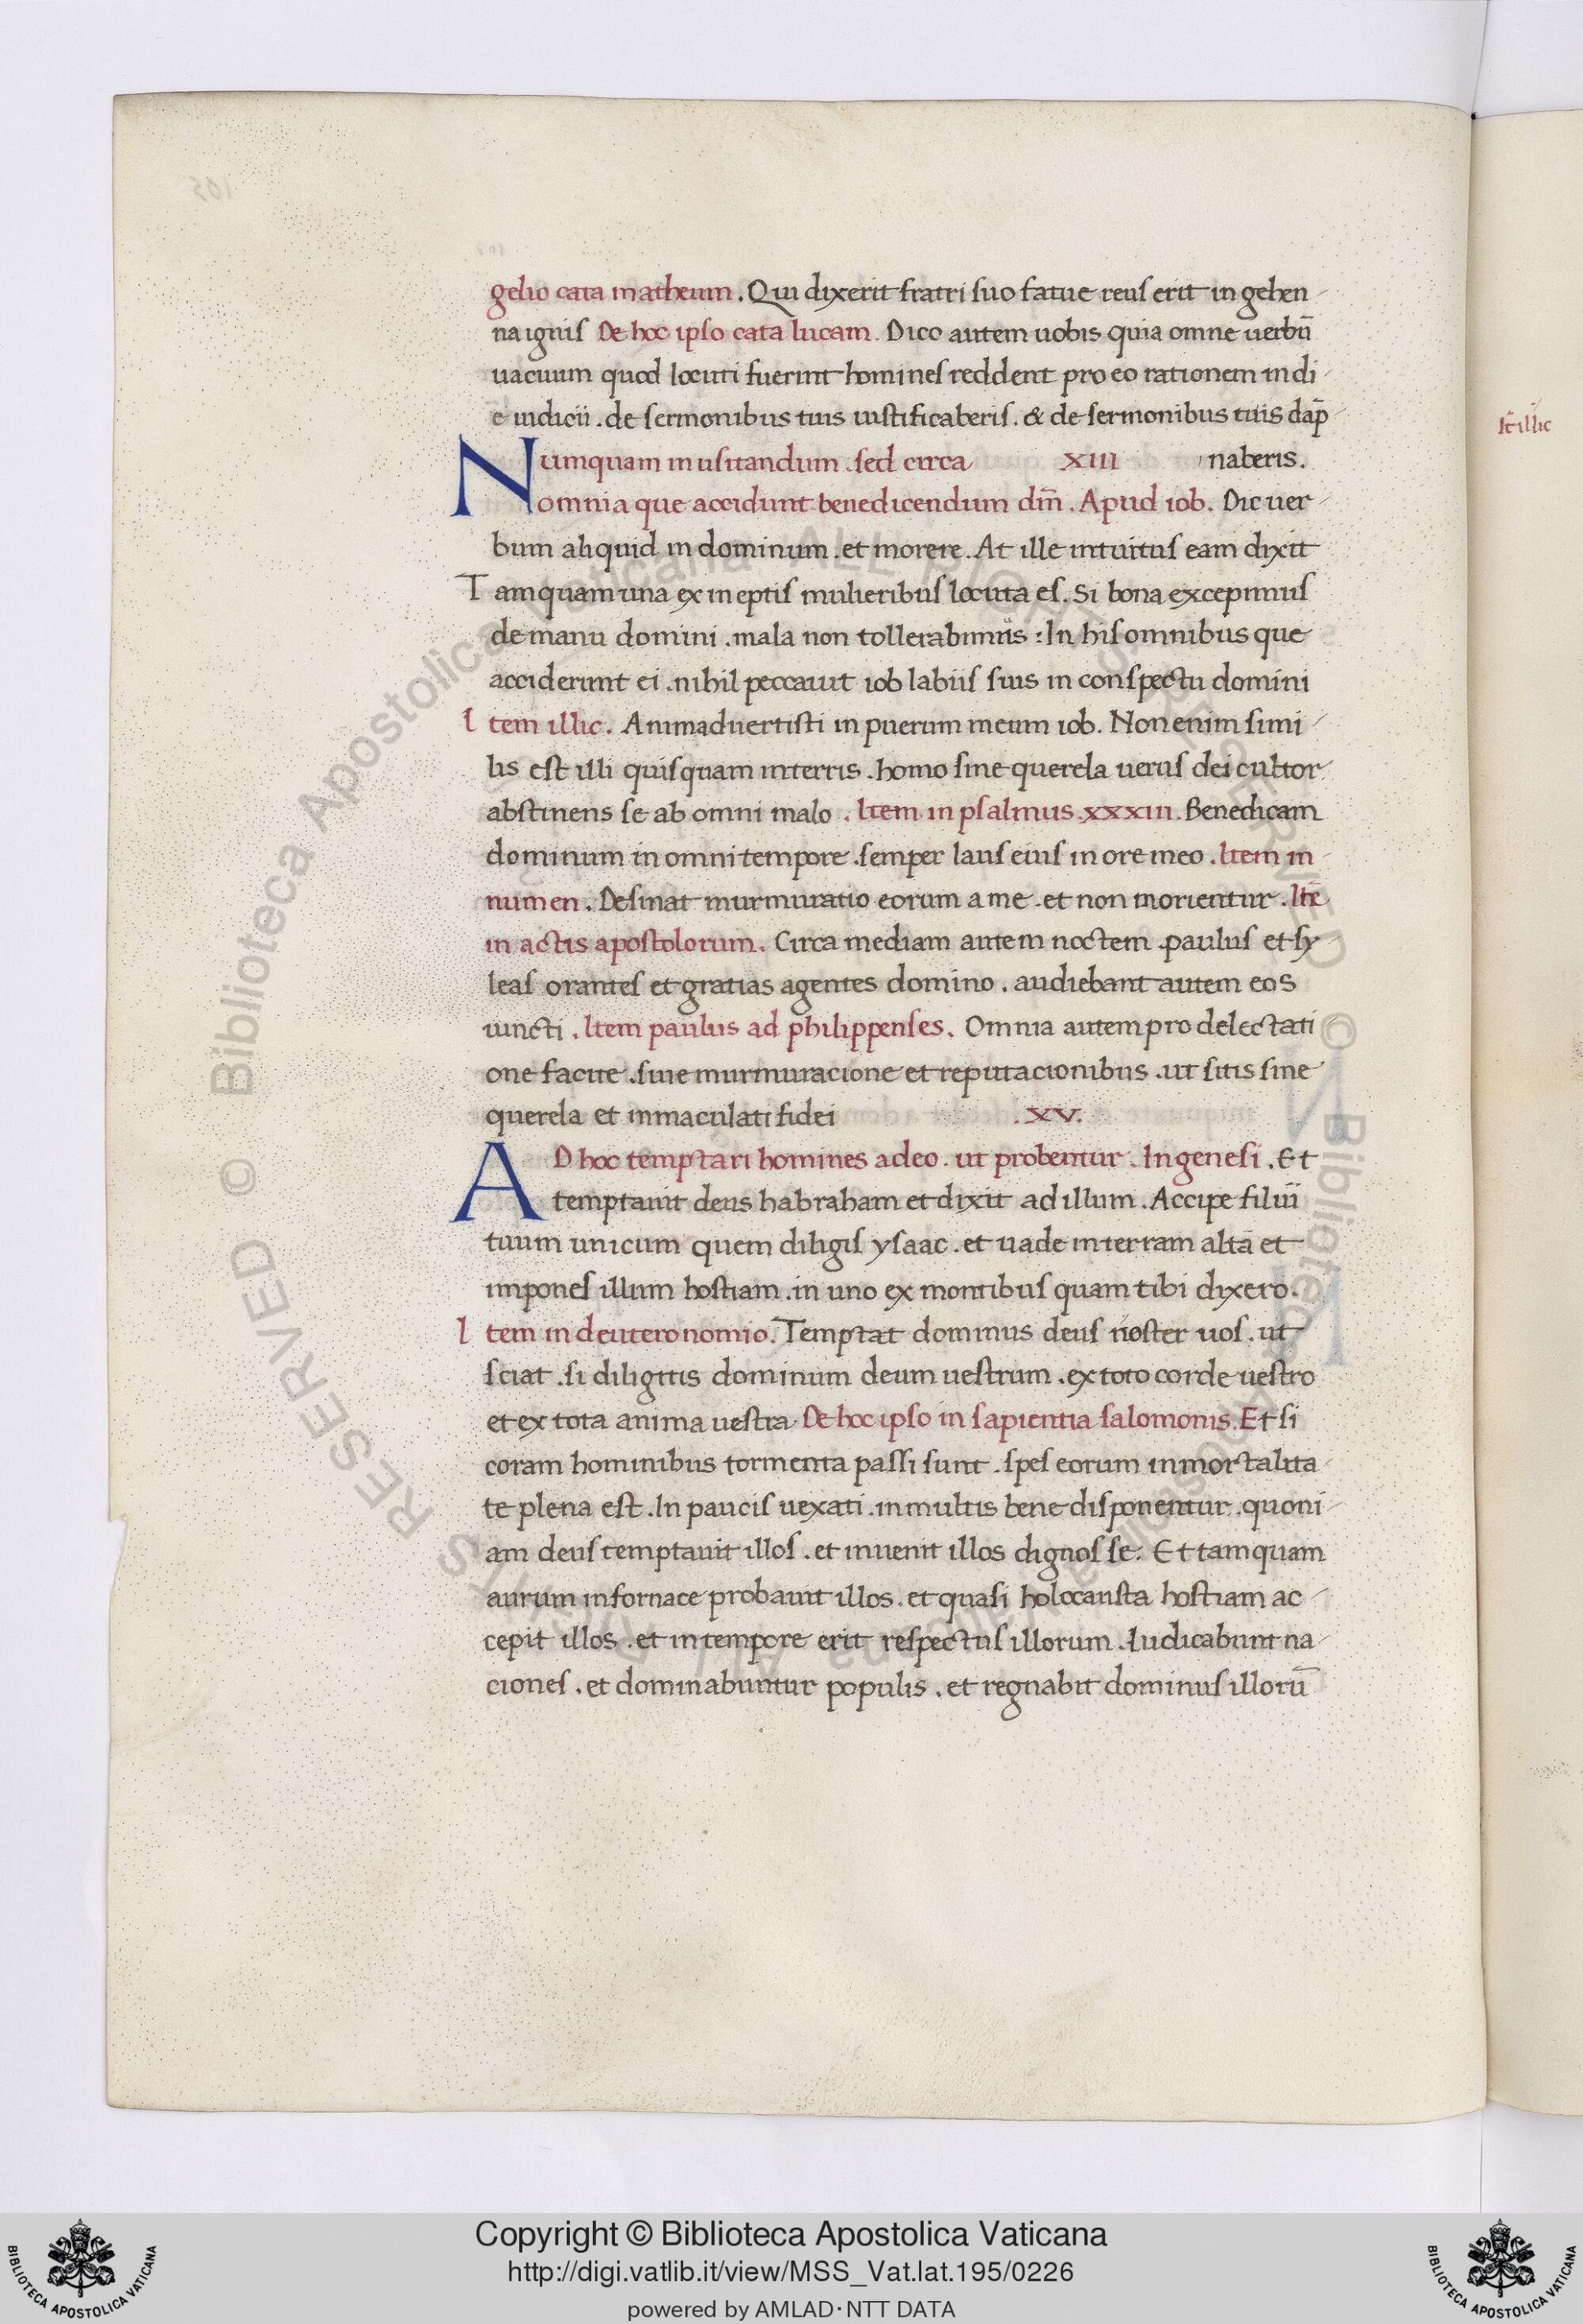 gelio cata matheum. Qui dixerit fratri suo fatue reus erit in gehen
na ignis De hoc ipso cata lucam. Dico autem uobis quia omne uerbū
uacuum quod locuti fuerint homines reddent pro eo rationem in di
e iudicii. de sermonibus tuis iustificaberis. & de sermonibus tuis dāp
Numquam musitandum. sed circa XIII naberis.
omnia que accidunt benedicendum dm̄. Apud iob. Dic uer
bum aliquid in dominum. et morere. At ille intuitus eam dixit
Tamquam una ex ineptis mulieribus locuta es. Si bona excepimus
de manu domini. mala non tollerabimus: In his omnibus que
acciderunt ei. nihil peccauit iob labiis suis in conspectu domini
Item illic. Animaduertisti in puerum meum iob. Non enim simi
lis est illi quisquam in terris. homo sine querela uerus dei cultor
abstinens se ab omni malo. Item in psalmus. xxxiii. Benedicam
dominum in omni tempore. semper laus eius in ore meo. Item in
numen. Desinat murmuratio eorum a me. et non morientur. Itē
in actis apostolorum. Circa mediam autem noctem. paulus et sy
leas orantes et gratias agentes domino. audiebant autem eos
uincti. Item paulus ad philippenses. Omnia autem pro delectati
one facite. siue murmuracione et reputacionibus. ut sitis sine
querela et inmaculati fidei .XV.
AD hoc temptari homines adeo. ut probentur. In genesi. Et
temptauit deus habraham et dixit ad illum. Accipe filiū
tuum unicum quem diligis ysaac. et uade in terram altā et
impones illum hostiam. in uno ex montibus quam tibi dixero.
Item in deuteronomio. Temptat dominus deus noster uos. ut
sciat. si diligitis dominum deum uestrum. ex toto corde uestro
et ex tota anima uestra De hoc ipso in sapientia salomonis. Et si
coram hominibus tormenta passi sunt. spes eorum inmortalita
te plena est. In paucis uexati. in multis bene disponentur. quoni
am deus temptauit illos. et inuenit illos dignos se. Et tamquam
aurum in fornace probauit illos. et quasi holocausta hostiam ac
cepit illos. et in tempore erit respectus illorum. Iudicabunt na
ciones. et dominabuntur populis. et regnabit dominus illorū
It illic
Copyright © Biblioteca Apostolica Vaticana
http://digi.vatlib.it/view/MSS_Vat.lat.195/0226
powered by AMLAD·NTT DATA
BIBLIOTECA APOSTOLICA VATICANA
BIBLIOTECA APOSTOLICA VATICANA
© Biblioteca Apostolica Vaticana ALL RIGHTS RESERVED